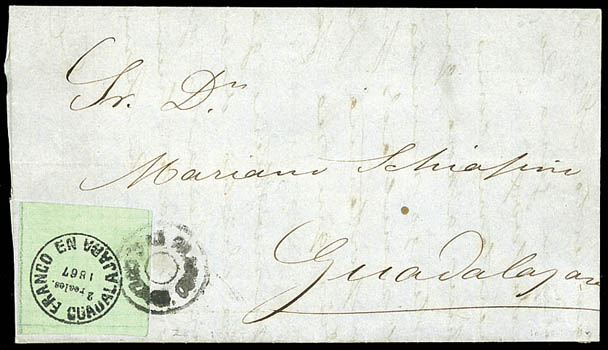 Sr. Dn.
Mariano Schiafini
Guadalajara
FRANCO EN GUADALAJARA
2 reales.
1867